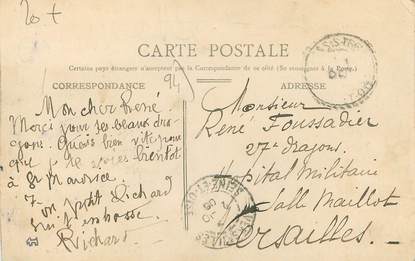 20 +
CARTE POSTALE
Certains pays étrangers n'acceptent pas la Correspondance de ce côté (Se renseigner à la Poste).
CORRESPONDANCE
94
ADRESSE
Mon cher René.
Merci pour tes beaux dra-
gons. bien vite pour
que je te bientôt
à St Maurice.
Ton petit Richard
qui t'embrasse.
Richard
Monsieur
René Foussadier
27e dragons.
Hôpital Militaire
Salle Maillot
Versailles.
VERSAILLES
SEINE-ET-OISE